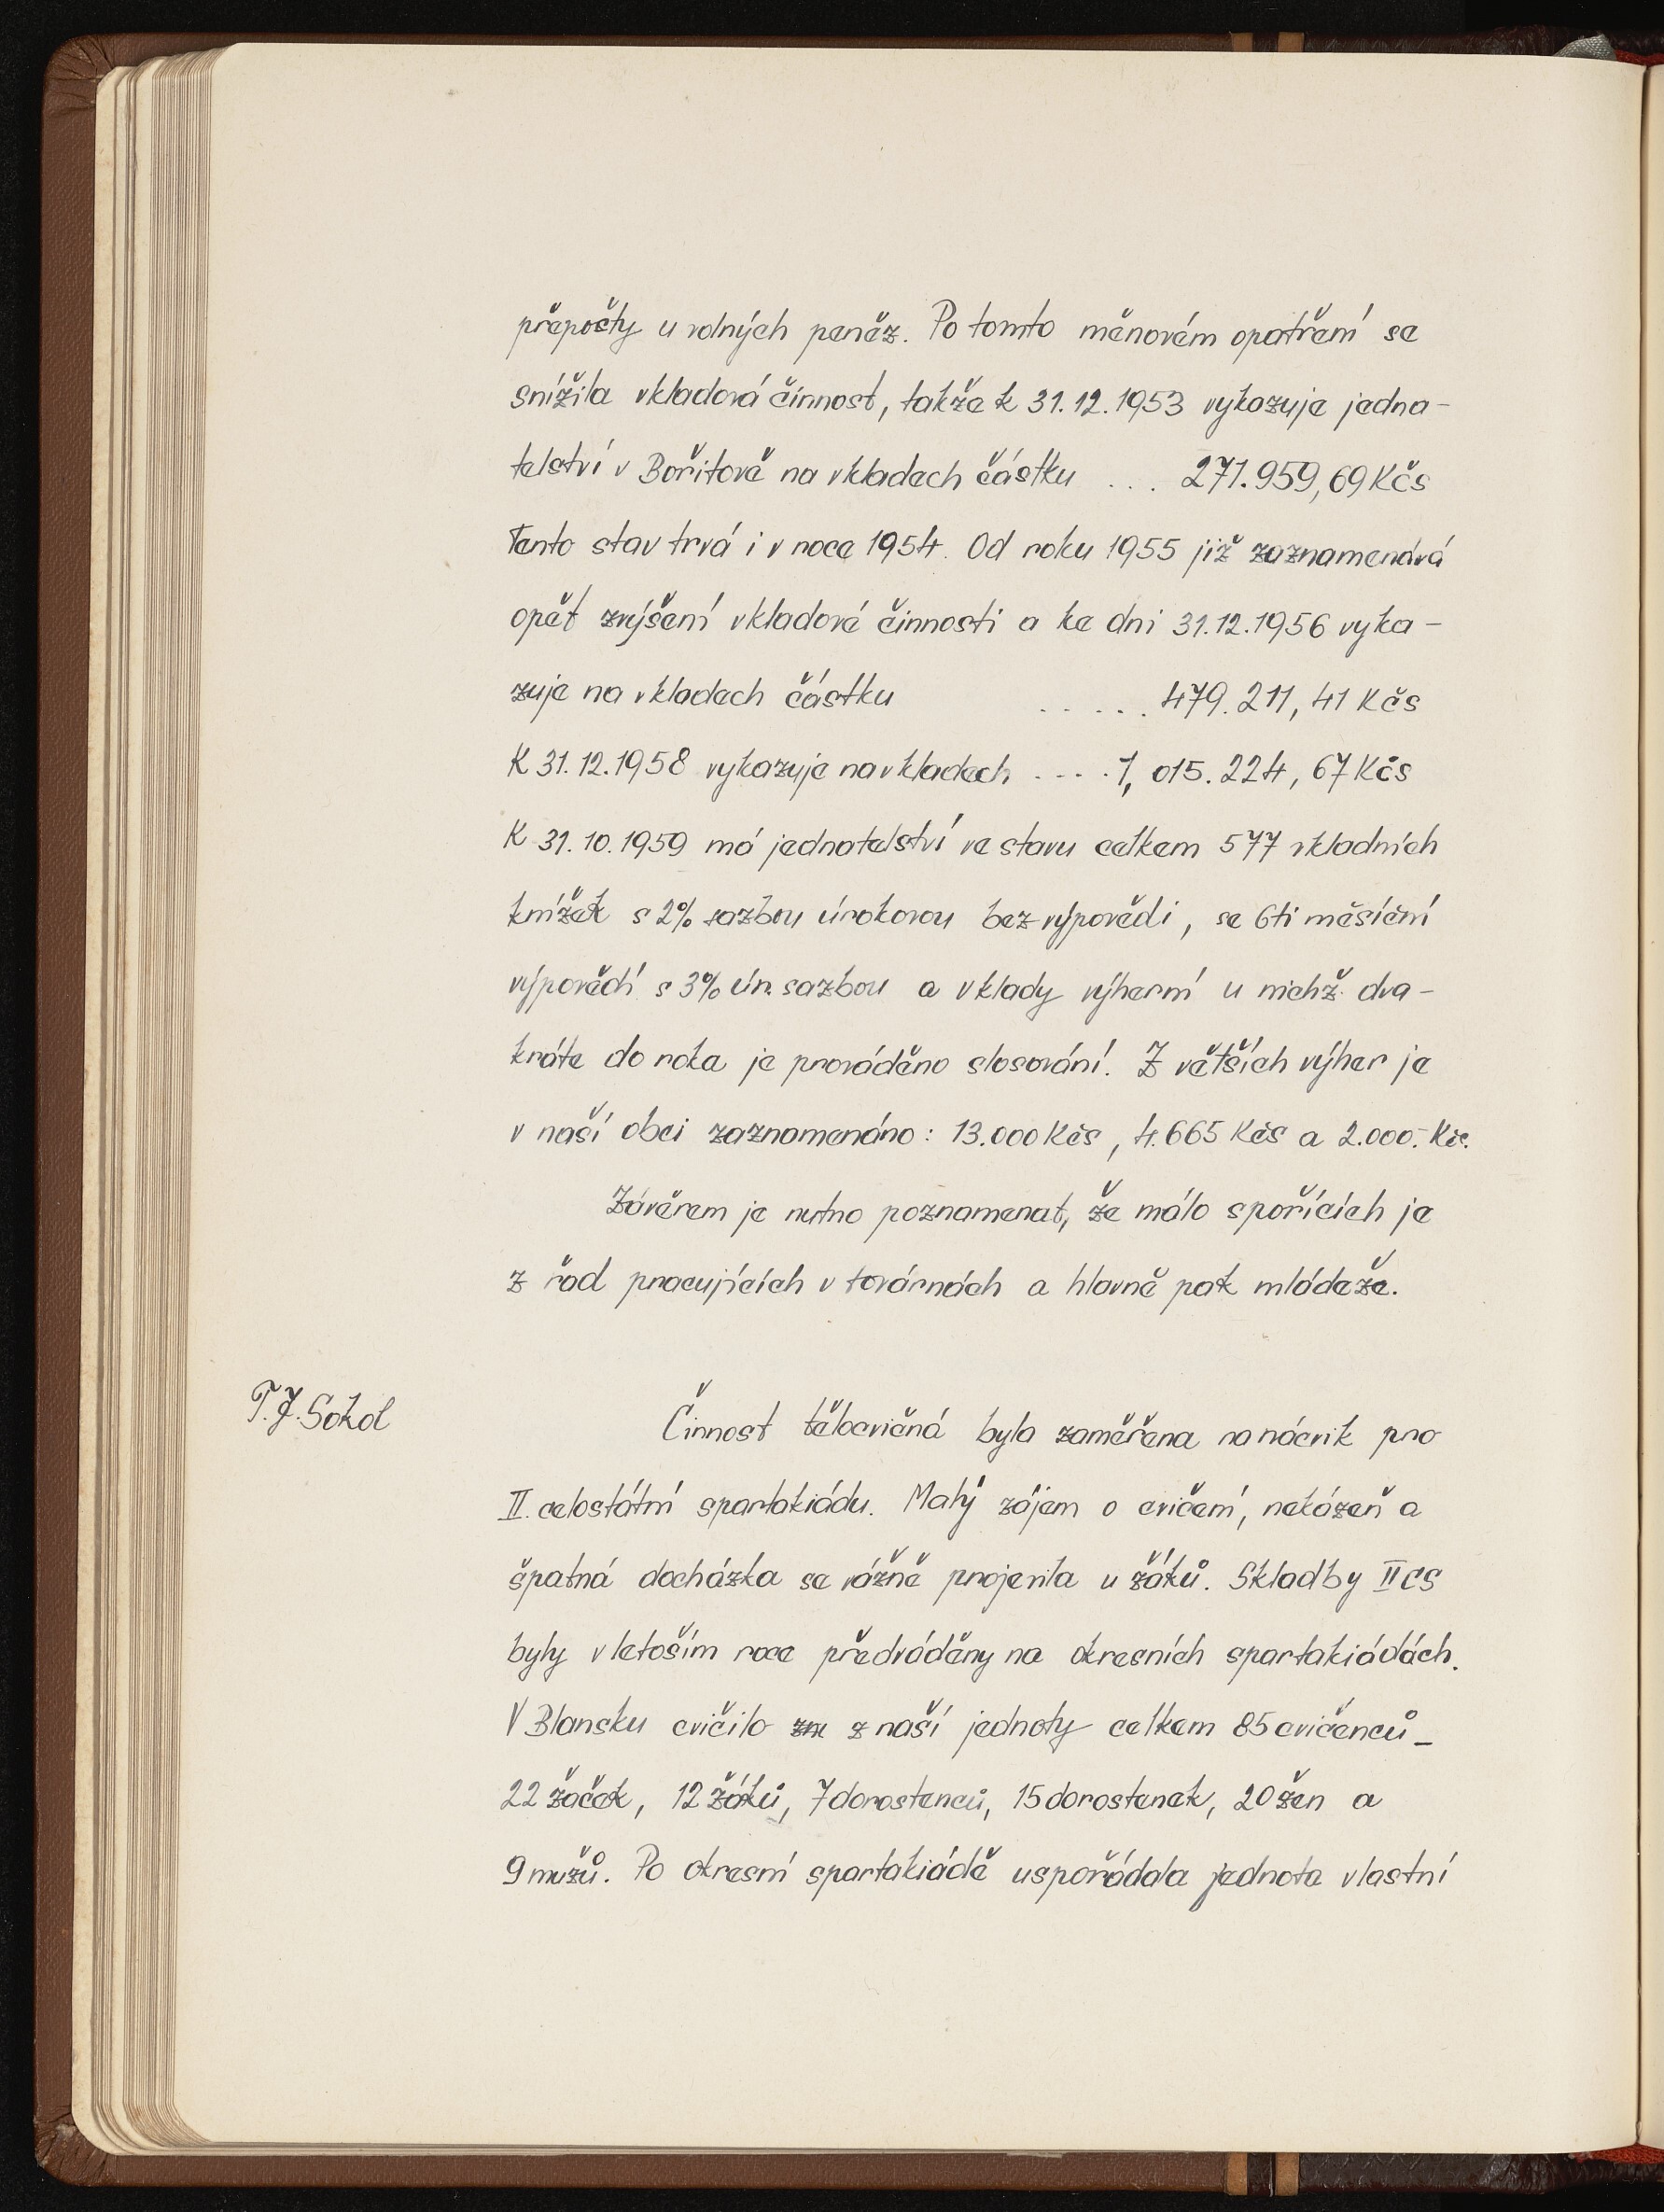 přepočty u volných peněz. Po tomto měnovém opatření se
snížila vkladová činnost, takže k 31.12.1953 vykazuje jedna-
telství v Bořitově na vkladech částku ... 271.959,69 Kčs
Tento stav trvá i v roce 1954. Od roku 1955 již zaznamenává
opět zvýšení vkladové činnosti a ke dni 31.12.1956 vyka-
zuje na vkladech částku ..... 479.211,41 Kčs
K 31.12.1958 vykazuje na vkladech .... 1,015.224,67 Kčs
K 31.10.1959 má jednatelství ve stavu celkem 577 vkladních
knížek s 2% sazbou úrokovou bez výpovědi, se 6ti měsíční
výpovědí s 3% úr. sazbou a vklady výherní u nichž dva-
kráte do roka je prováděno slosování. Z větších výher je
v naší obci zaznamenáno: 13.000 Kčs, 4.665 Kčs a 2.000.- Kčs.
Závěrem je nutno poznamenat, že málo spořících je
z řad pracujících v továrnách a hlavně pak mládeže.
T.J. Sokol
Činnost tělocvičná byla zaměřena na nácvik pro
II. celostátní spartakiádu. Malý zájem o cvičení, nekázeň a
špatná docházka se vážně projevila u žáků. Skladby II CS
byly v letoším roce předváděny na okresních spartakiádách.
V Blansku cvičilo z naší jednoty celkem 85 cvičenců -
22 žaček, 12 žáků, 7 dorostenců, 15 dorostenek, 20 žen a
9 mužů. Po okresní spartakiádě uspořádala jednota vlastní